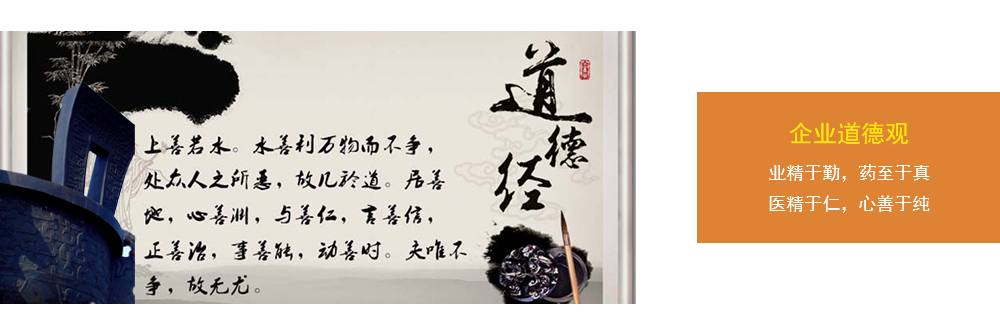 道德经
上善若水。水善利万物而不争，
处众人之所恶，故几於道。居善
地，心善渊，与善仁，言善信，
正善治，事善能，动善时。夫唯不
争，故无尤。
企业道德观
业精于勤，药至于真
医精于仁，心善于纯